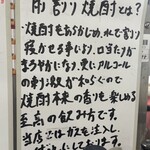 前割り焼酎とは?
・焼酎をあらかじめ、水で割り
寝かせる事により、口当たりが
まろやかになり、更にアルコール
の刺激が和らぐので
焼酎本来の香りも楽しめる
至高の飲み方です。
当店ではガスを注入し